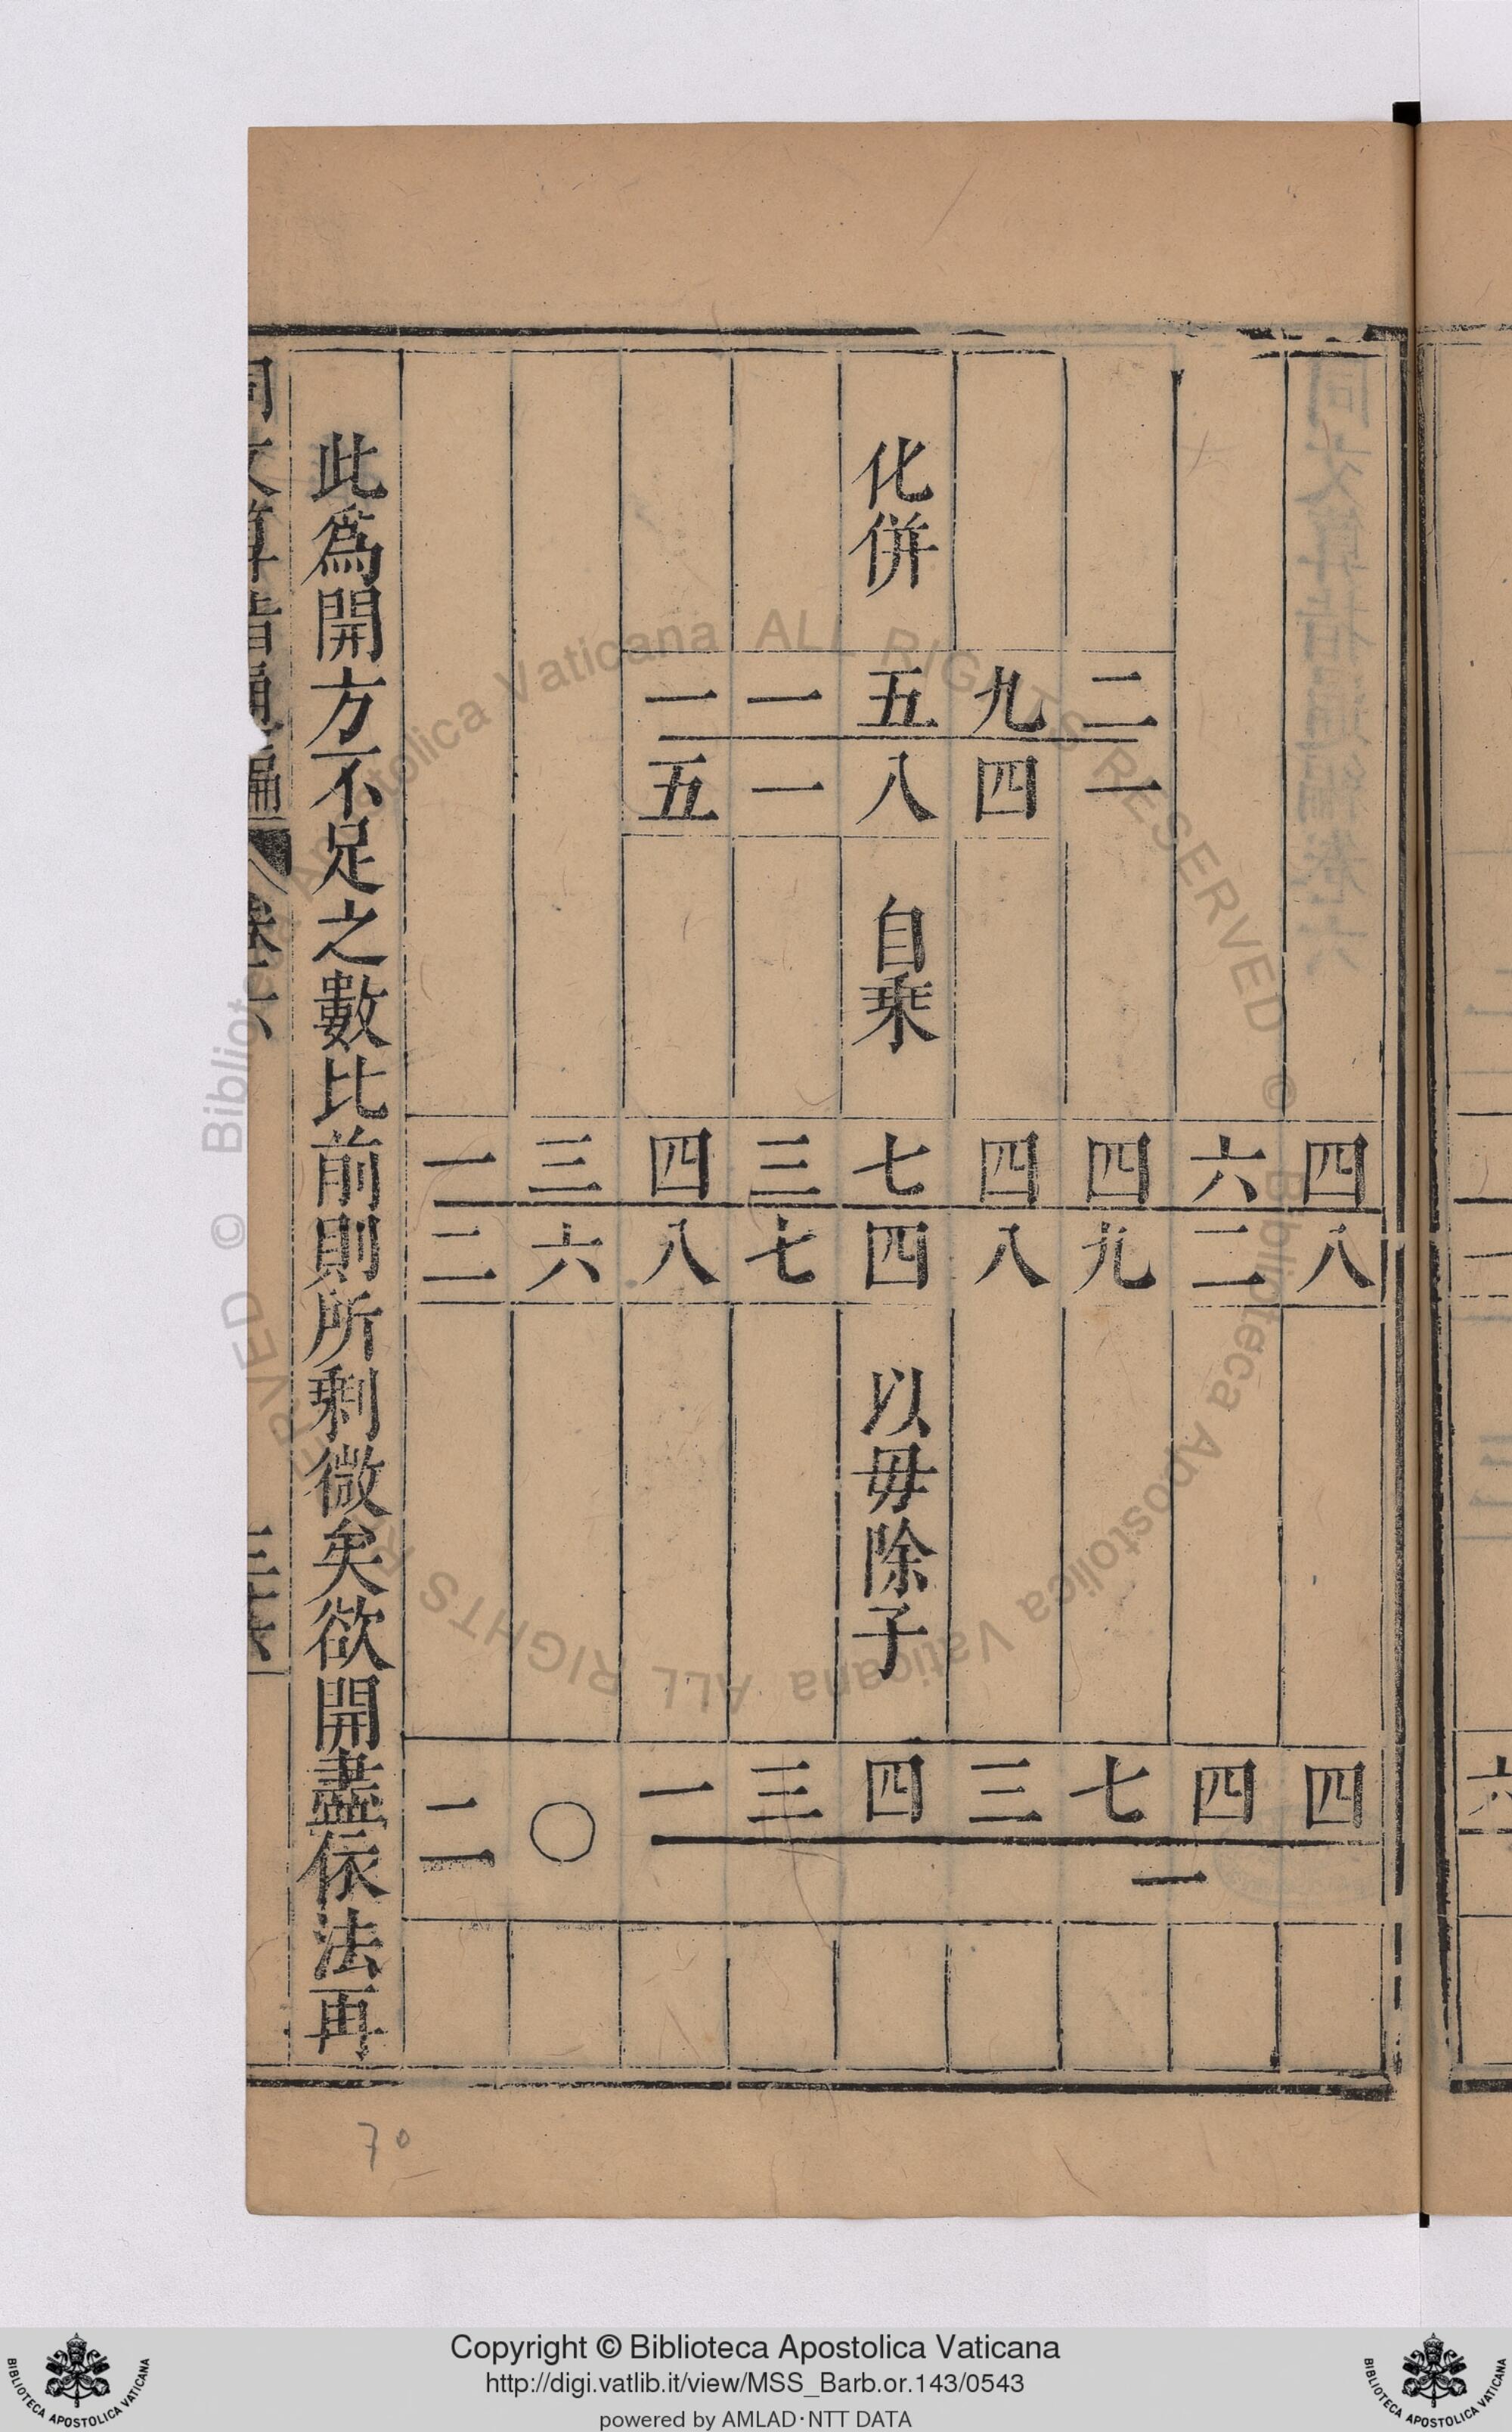 化併
一一五九二
五一八四一
自乘
一三四三七四四六四
二六八七四八九二八
以毋除子
二〇一三四三七四四
一
此爲開方不足之數比前則所剩微矣欲開盡依法再
同文算指通編 卷六
70
Copyright © Biblioteca Apostolica Vaticana
http://digi.vatlib.it/view/MSS_Barb.or.143/0543
powered by AMLAD·NTT DATA